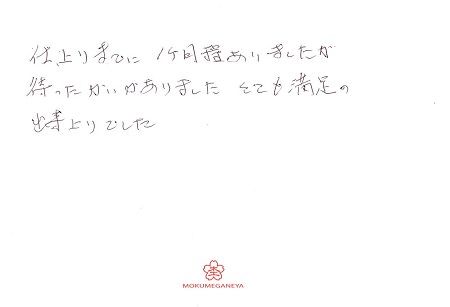 仕上りまでに 1ケ月程ありましたが
待ったかいがありました とても満足の
出来上りでした
MOKUMEGANEYA